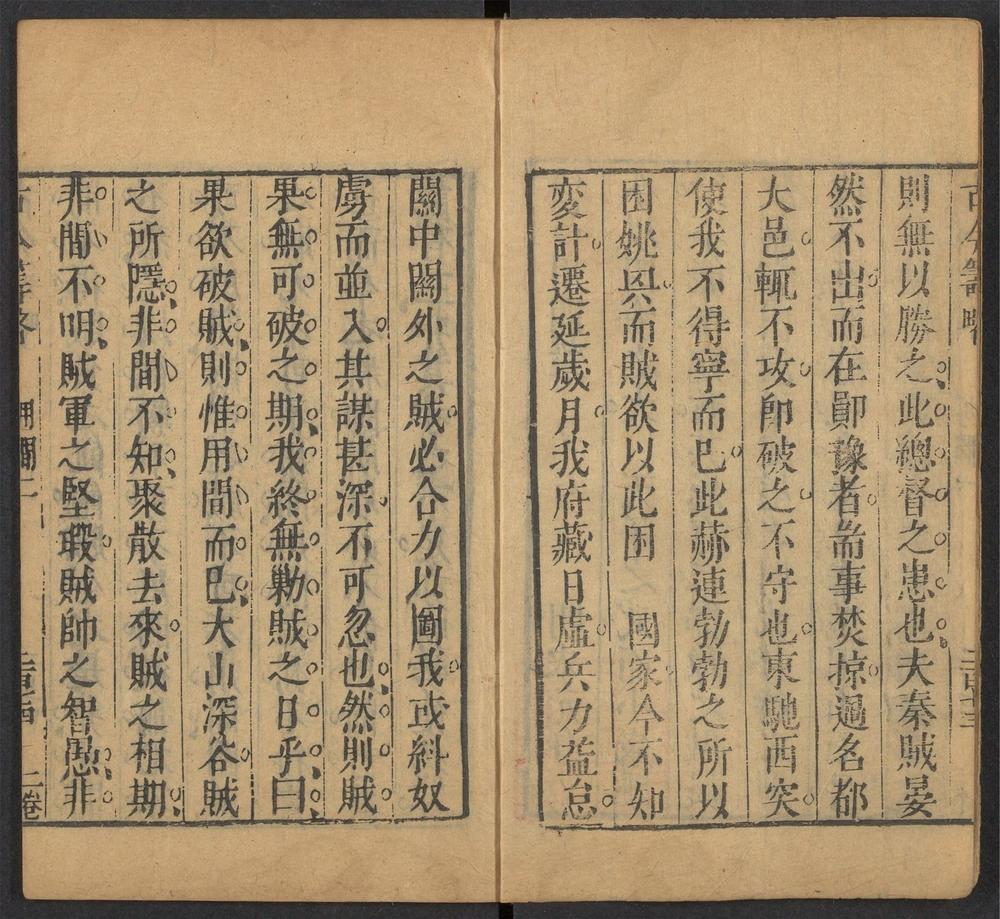 古今籌略
二百七十三
則無以勝之此總督之患也夫秦賊晏
然不出而在鄖豫者耑事焚掠過名都
大邑輒不攻卽破之不守也東馳西突
使我不得寧而已此赫連勃勃之所以
困姚興而賊欲以此困 國家今不知
変計遷延歲月我府藏日虛兵力益怠
關中關外之賊必合力以圖我或糾奴
虜而並入其謀甚深不可忽也然則賊
果無可破之期我終無勦賊之日乎曰
果欲破賊則惟用間而已大山深谷賊
之所隱非間不知聚散去來賊之相期
非間不明賊軍之堅瑕賊帥之智愚非
古今籌略 用間二 二百七十四 二卷